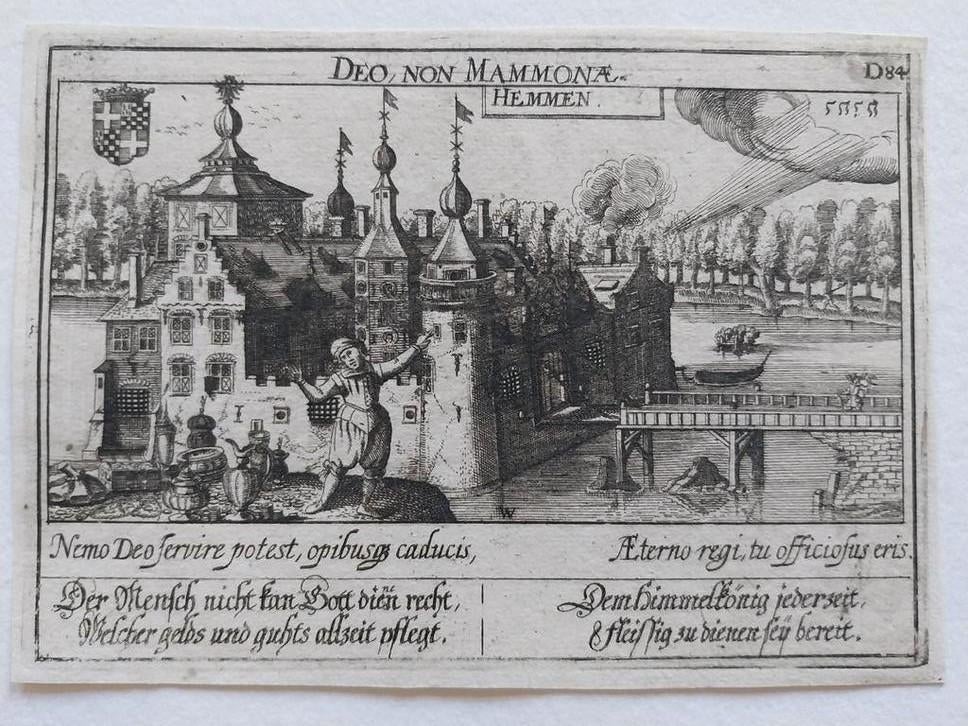 DEO, NON MAMMONÆ.
D84
HEMMEN.
W
Nemo Deo servire potest, opibusq₃ caducis,
Æterno regi, tu officiosus eris.
Der Mensch nicht kan Gott dien recht,
Welcher gelds und guhts allzeit pflegt.
Dem Himmelkönig jederzeit,
fleissig zu dienen seÿ bereit.